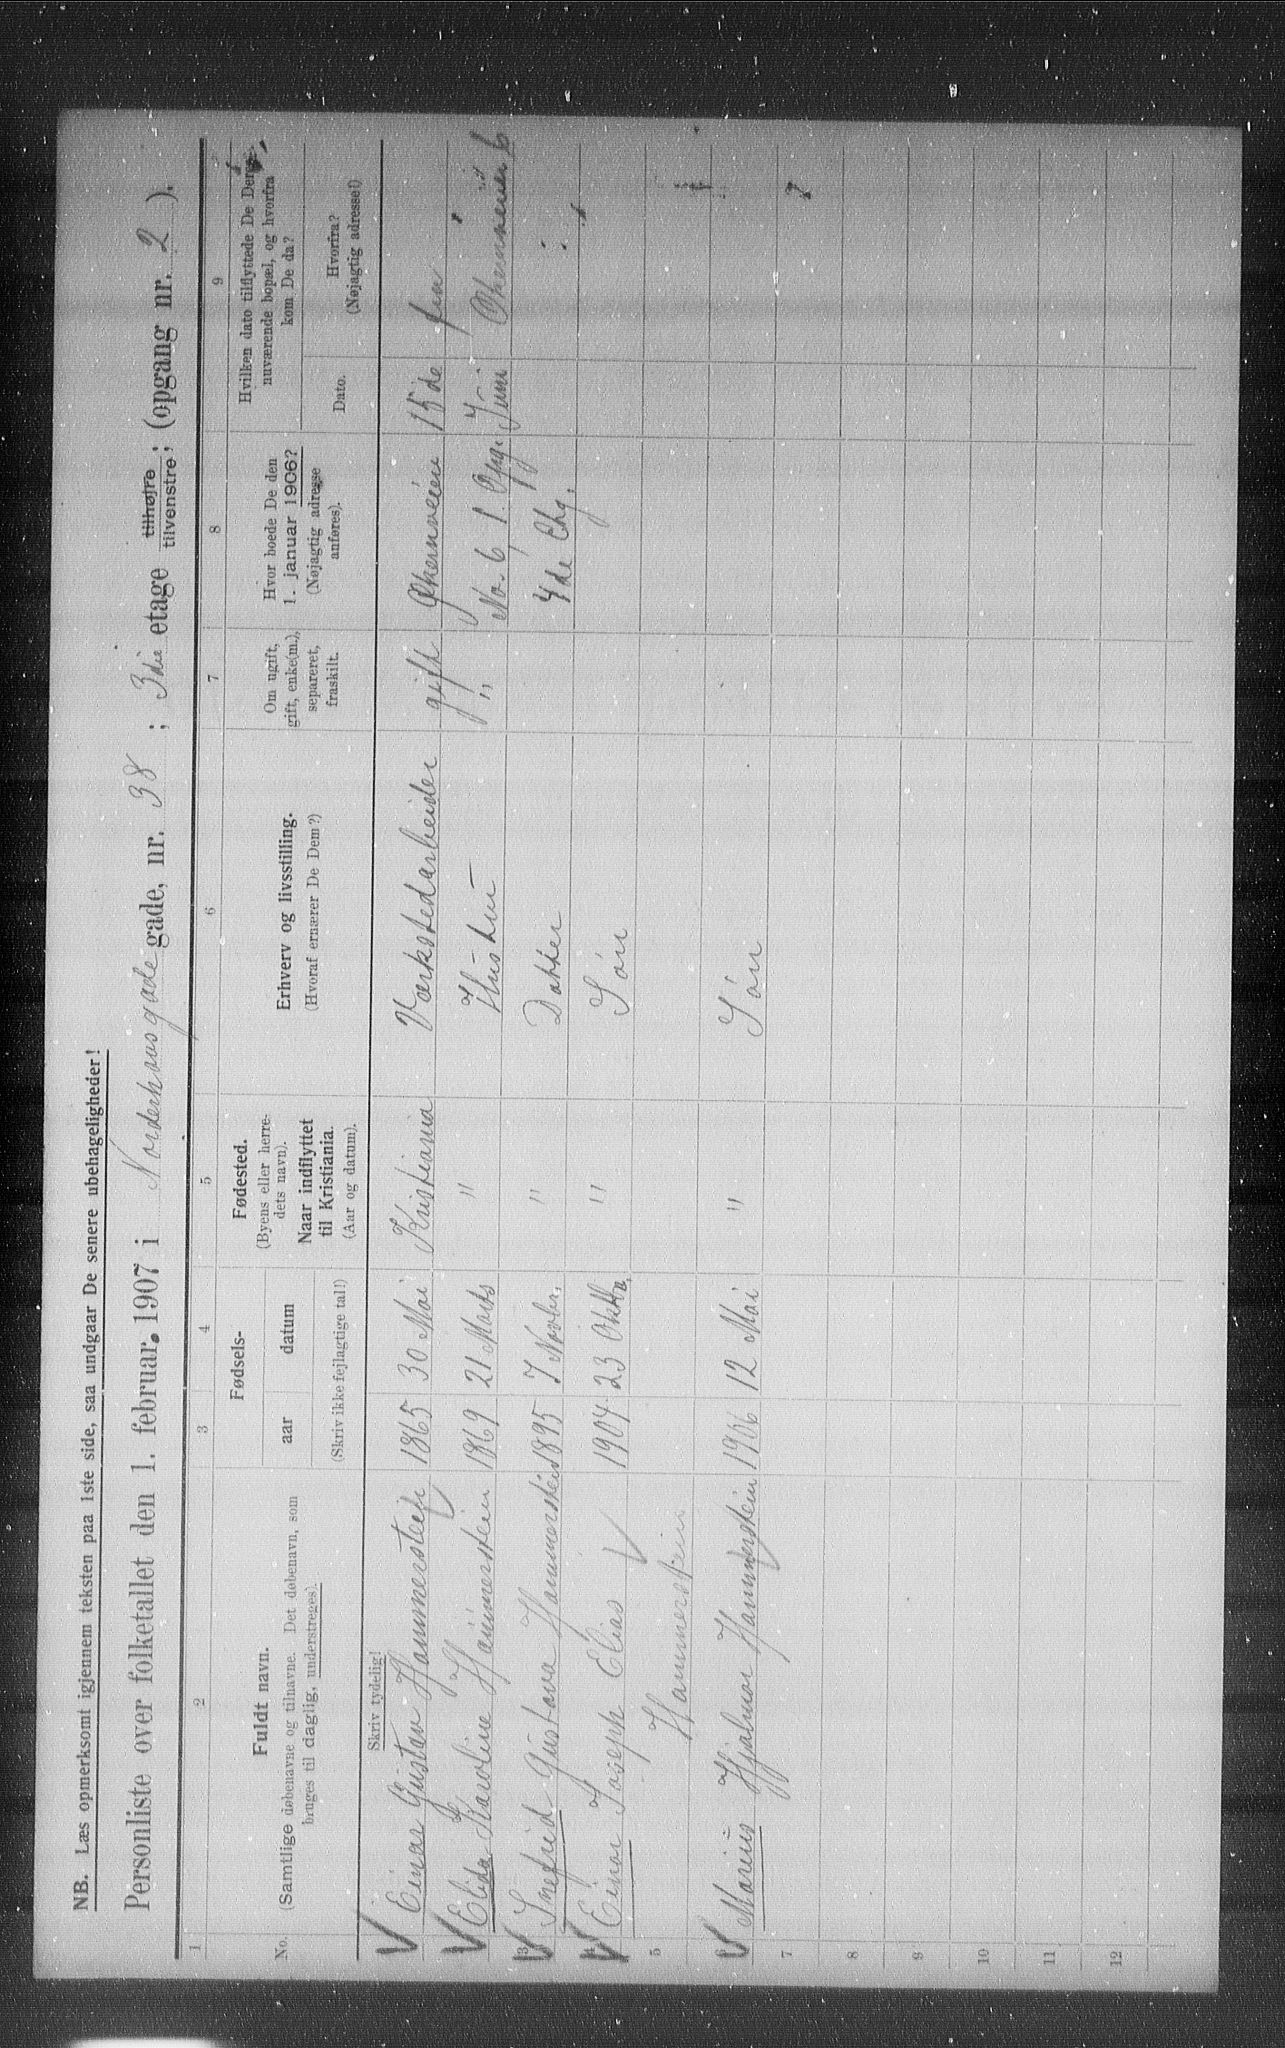 NB. Læs opmerksomt igjennem teksten paa 1ste side, saa undgaar De senere ubehageligheder!
Personliste over folketallet den 1. februar 1907 i Norderhovsgade gade, nr. 38; 3die etage tilhøjre tilvenstre; (opgang nr. 2).
1 2 3 4 5 6 7 8 9
No.
Fuldt navn.
(Samtlige døbenavne og tilnavne. Det døbenavn, som
bruges til daglig, understreges).
Fødsels-
aar datum
(Skriv ikke fejlagtige tal!)
Fødested.
(Byens eller herre-
dets navn).
Naar indflyttet
til Kristiania.
(Aar og datum).
Erhverv og livsstilling.
(Hvoraf ernærer De Dem?)
Om ugift,
gift, enke(m.),
separeret,
fraskilt.
Hvor boede De den
1. januar 1906?
(Nøjagtig adresse
anføres).
Hvilken dato tilflyttede De Deres
nuværende bopæl, og hvorfra
kom De da?
Dato.
Hvorfra?
(Nøjagtig adresse!)
Skriv tydelig!
Einar Gustav Hammerstein 1865 30 Mai Kristiania Værkstedarbeider gift Økernveien 15de fra
Elida Karoline Hammerstein 1869 21 Marts " Hustru " No. 6, 1. Opg. Juni Økernveien 6
3 Gustava Hammerstein 1895 7 Novbr. " Datter 4de Etg.
Einar Joseph Elias 1904 23 Oktbr. " Sön
5 Hammerstein
6 Marius Hjalmar Hammerstein 1906 12 Mai " Sön
7
8
9
10
11
12